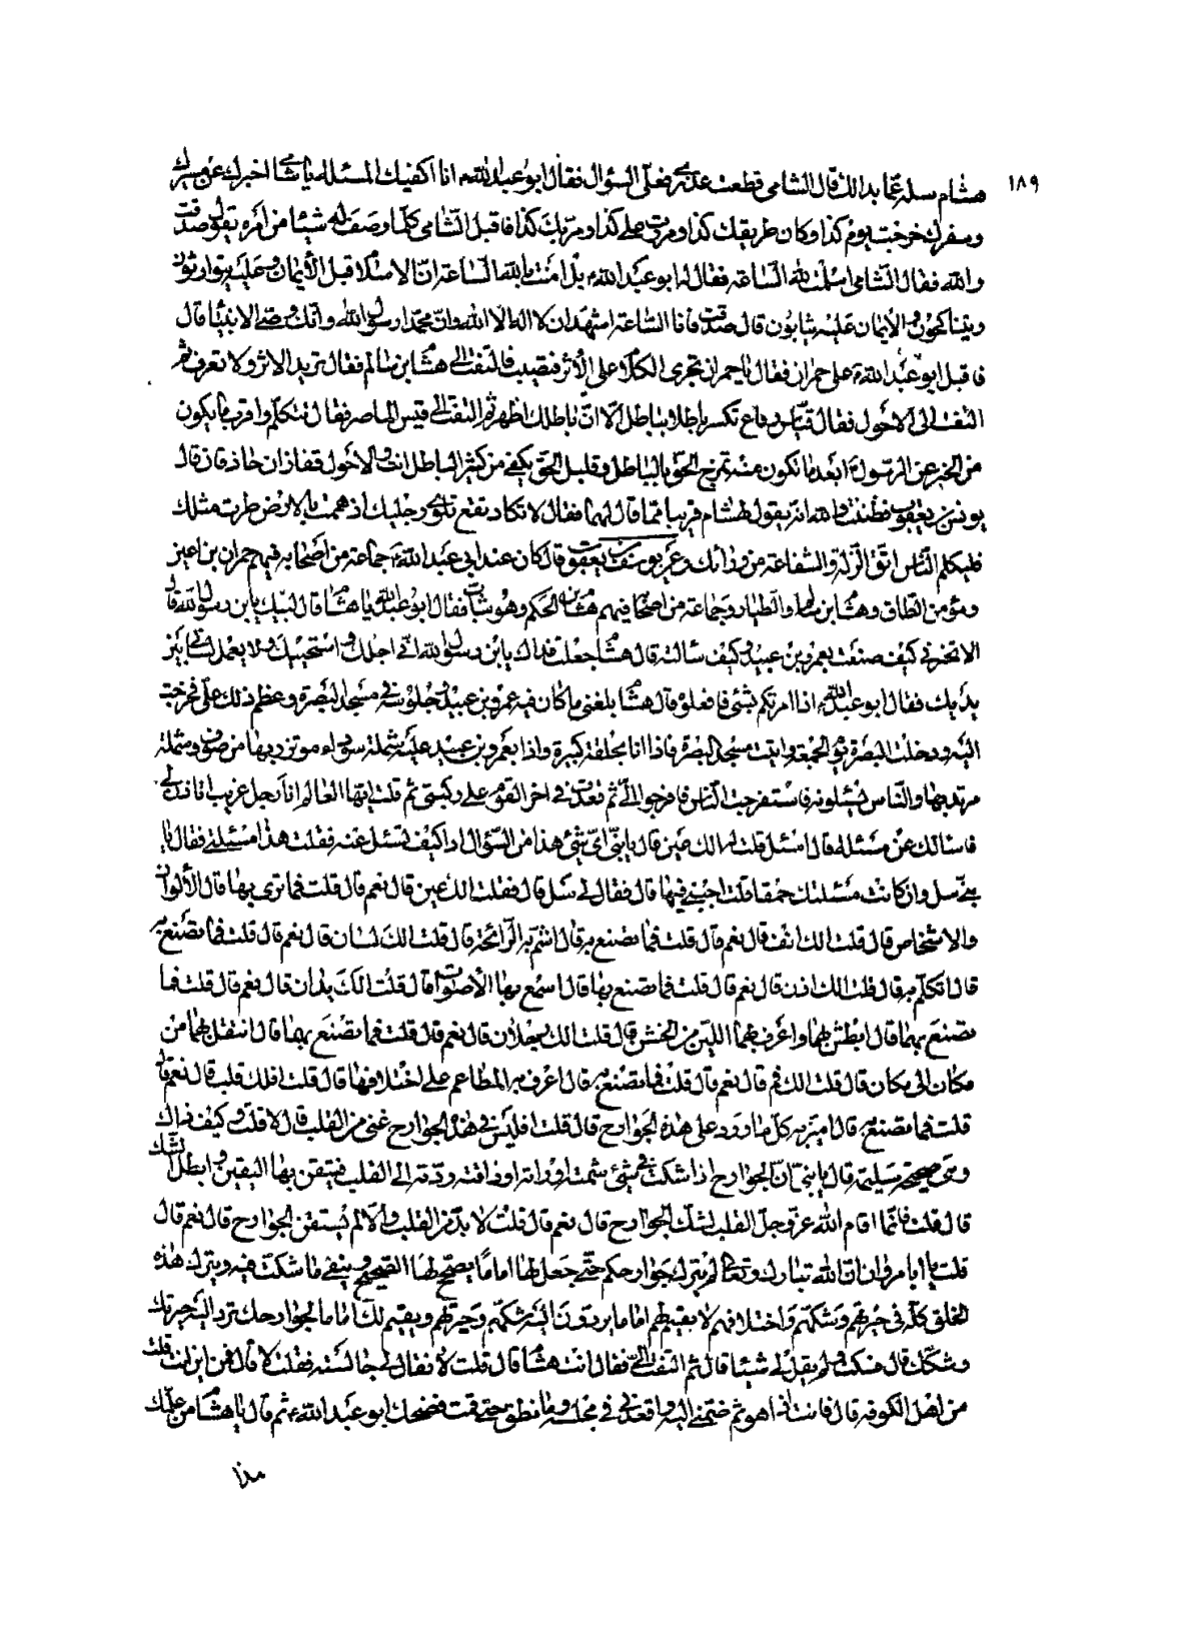 ١٨٩
هشام سله عما بدا لك قال الشامي قطعت عذري فعلي السؤال فقال ابو عبد الله ع انا اكفيك المسئلة يا شامي اخبرك عن مسيرك
وسفرك خرجت يوم كذا وكان طريقك كذا ومررت على كذا ومر بك كذا فاقبل الشامي كلما وصف له شيئا من امره يقول صدقت
والله فقال الشامي اسلمت لله الساعة فقال له ابو عبد الله ع بل امنت بالله الساعة ان الاسلام قبل الأيمان وعليه يتوارثون
ويتناكحون والأيمان عليه يثابون قال صدقت فانا الساعة اشهد ان لا اله الا الله وان محمدا رسول الله وانك وصي الانبياء قال
فاقبل ابو عبد الله ع على حمران فقال يا حمران تجرى الكلام على الأثر فتصيب فالتفت الى هشام ابن سالم فقال تريد الاثر ولا تعرف ثم
التفت الى الاحول فقال قياس رواغ تكسر باطلا بباطل الا ان باطلك اظهر ثم التفت الى قيس الماصر فقال تتكلم واقرب ما يكون
من الخبر عن الرسول ص ابعد ما تكون منه تمزج الحق بالباطل وقليل الحق يكفي من كثير الباطل انت والاحول قفازان حاذقان قال
يونس بن يعقوب فظننت والله انه يقول لهشام قريبا مما قال لهما فقال لا تكاد تقع تلوي رجليك اذ هممت بالارض طرت مثلك
فليكلم الناس اتق الزلة والشفاعة من ورائك وعن يونس بن يعقوب قال كان عند ابي عبد الله ع جماعة من اصحابه فيهم حمران بن اعين
ومؤمن الطاق وهشام ابن سالم والطيار وجماعة من اصحابه فيهم هشام بن الحكم وهو شاب فقال ابو عبد الله يا هشام قال لبيك يابن رسول الله قال
الا تخبرني كيف صنعت بعمرو بن عبيد وكيف سالته قال هشام جعلت فداك يابن رسول الله اني اجلك واستحييك ولا يعمل لساني بين
يديك فقال ابو عبد الله ع اذا امرتكم بشئ فافعلوه قال هشام بلغني ما كان فيه عمرو بن عبيد وجلوسه في مسجد البصرة وعظم ذلك علي فخرجت
اليه ودخلت البصرة يوم الجمعة واتيت مسجد البصرة فاذا انا بحلقة كبيرة واذا بعمرو بن عبيد عليه شملة سوداء موتزر بها من صوف وشملة
مرتد بها والناس يسئلونه فاستفرجت الناس فافرجوا لي ثم قعدت في اخر القوم على ركبتي ثم قلت ايها العالم انا رجل غريب اتاذن لي
فاسالك عن مسئلة قال اسئل قلت له الك عين قال يا بني اي شئ هذا من السؤال اذا كيف تسئل عنه فقلت هذا مسئلتي فقال يا
بني سل وان كانت مسئلتك حمقا قلت اجبني فيها قال فقال لي سل قال فقلت الك عين قال نعم قال قلت فما ترى بها قال الألوان
والاشخاص قال قلت الك انف قال نعم قال قلت فما تصنع به قال اشم به الرائحة قال قلت الك لسان قال نعم قال قلت فما تصنع به
قال اتكلم به قال قلت الك اذن قال نعم قال قلت فما تصنع بها قال اسمع بها الأصوات قال قلت الك يدان قال نعم قال قلت فما
تصنع بهما قال ابطش بهما واعرف بهما اللين من الخشن قال قلت الك رجلان قال نعم قال قلت فما تصنع بهما قال انتقل بهما من
مكان الى مكان قال قلت الك فم قال نعم قال قلت فما تصنع به قال اعرف به المطاعم على اختلافها قال قلت افلك قلب قال نعم قال
قلت فما تصنع به قال اميز به كل ما ورد على هذه الجوارح قال قلت افليس في هذه الجوارح غنى من القلب قال لا قلت وكيف ذاك
وهي صحيحة سليمة قال يا بني ان الجوارح اذا شكت في شئ شمته او راته او ذاقته ردته الى القلب فيتقن بها اليقين وابطل الشك
قال قلت فانما اقام الله عز وجل القلب لشك الجوارح قال نعم قال قلت لا بد من القلب والا لم يستقن الجوارح قال نعم قال
قلت يا ابا مروان ان الله تبارك وتعالى لم يترك جوارحكم حتى جعل لها اماما يصحح لها الصحيح وينفي ما شكت فيه ويترك هذه
الخلق كله في حيرتهم وشكهم واختلافهم لا يقيم لهم اماما يردون اليه شكهم وحيرتهم ويقيم لك اماما لجوارحك ترد اليه حيرتك
وشكك قال فسكت ولم يقل لي شيئا قال ثم التفت الي فقال انت هشام قال قلت لا فقال لي جالسته فقلت لا قال فمن اين انت قلت
من اهل الكوفة قال فانت اذا هو ثم ضمني اليه واقعدني في مجلسه وما نطق حتى قمت فضحك ابو عبد الله ع ثم قال يا هشام من علمك
هذا